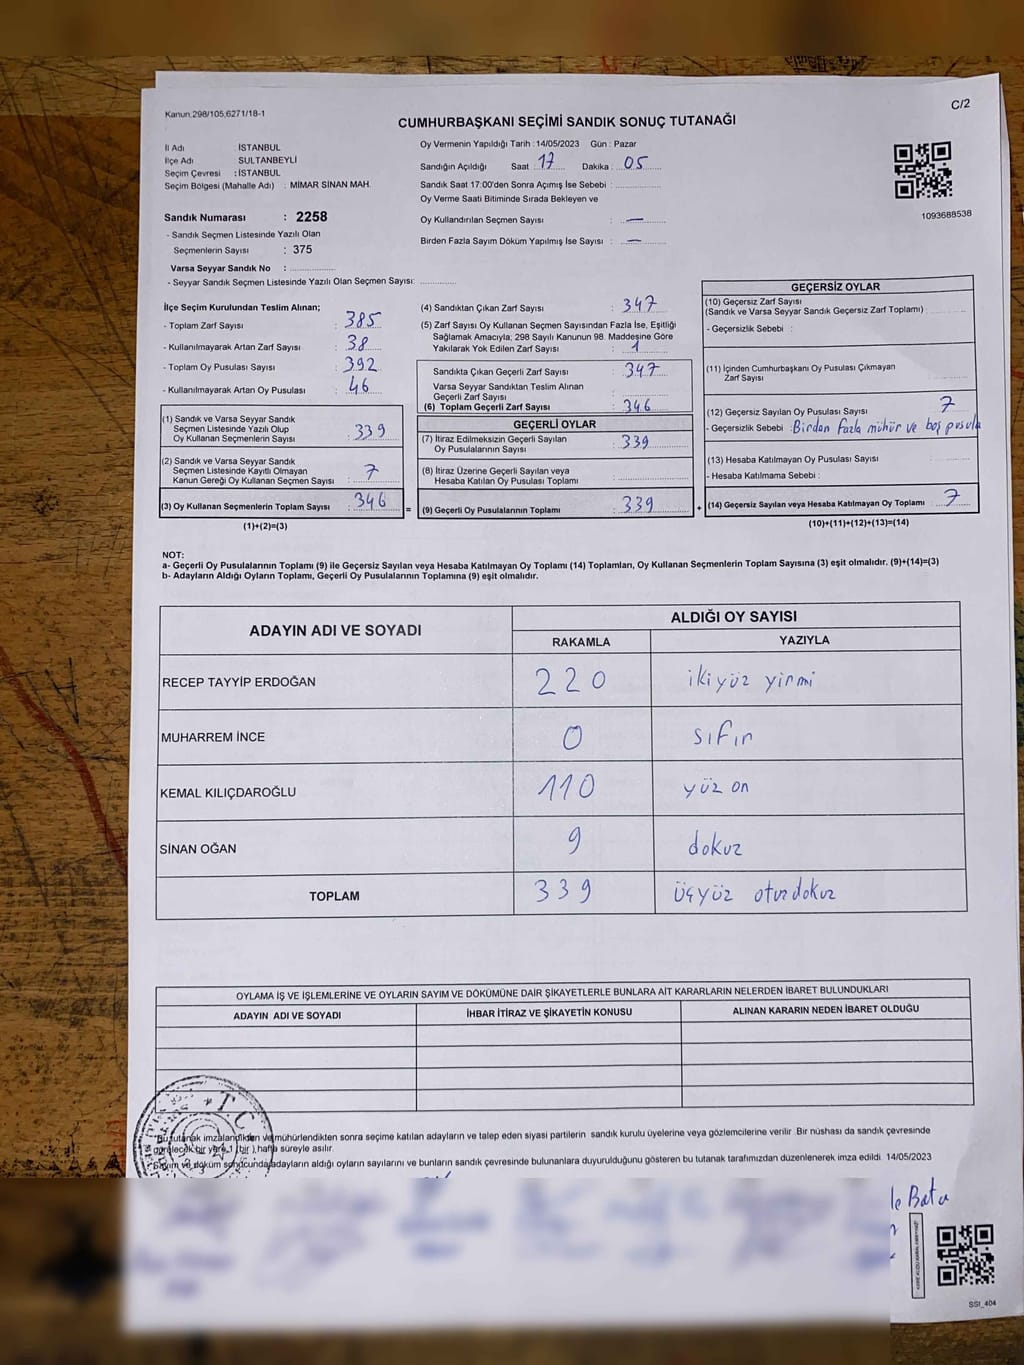 Kanun:298/105;6271/18-1
C/2
CUMHURBAŞKANI SEÇİMİ SANDIK SONUÇ TUTANAĞI
İl Adı : İSTANBUL
İlçe Adı : SULTANBEYLİ
Seçim Çevresi : İSTANBUL
Seçim Bölgesi (Mahalle Adı) : MİMAR SİNAN MAH.
Sandık Numarası : 2258
- Sandık Seçmen Listesinde Yazılı Olan
Seçmenlerin Sayısı : 375
Varsa Seyyar Sandık No :
- Seyyar Sandık Seçmen Listesinde Yazılı Olan Seçmen Sayısı:
Oy Vermenin Yapıldığı Tarih :14/05/2023 Gün : Pazar
Sandığın Açıldığı Saat : 17 Dakika : 05
Sandık Saat 17:00'den Sonra Açımış İse Sebebi :
Oy Verme Saati Bitiminde Sırada Bekleyen ve
Oy Kullandırılan Seçmen Sayısı : —
Birden Fazla Sayım Döküm Yapılmış İse Sayısı : —
1093688538
İlçe Seçim Kurulundan Teslim Alınan;
- Toplam Zarf Sayısı : 385
- Kullanılmayarak Artan Zarf Sayısı : 38
- Toplam Oy Pusulası Sayısı : 392
- Kullanılmayarak Artan Oy Pusulası : 46
(1) Sandık ve Varsa Seyyar Sandık
Seçmen Listesinde Yazılı Olup
Oy Kullanan Seçmenlerin Sayısı : 339
(2) Sandık ve Varsa Seyyar Sandık
Seçmen Listesinde Kayıtlı Olmayan
Kanun Gereği Oy Kullanan Seçmen Sayısı : 7
(3) Oy Kullanan Seçmenlerin Toplam Sayısı : 346 =
(1)+(2)=(3)
(4) Sandıktan Çıkan Zarf Sayısı : 347
(5) Zarf Sayısı Oy Kullanan Seçmen Sayısından Fazla İse, Eşitliği
Sağlamak Amacıyla; 298 Sayılı Kanunun 98. Maddesine Göre
Yakılarak Yok Edilen Zarf Sayısı : 1
Sandıkta Çıkan Geçerli Zarf Sayısı : 347
Varsa Seyyar Sandıktan Teslim Alınan
Geçerli Zarf Sayısı :
(6) Toplam Geçerli Zarf Sayısı : 346
GEÇERLİ OYLAR
(7) İtiraz Edilmeksizin Geçerli Sayılan
Oy Pusulalarının Sayısı : 339
(8) İtiraz Üzerine Geçerli Sayılan veya
Hesaba Katılan Oy Pusulası Toplamı :
(9) Geçerli Oy Pusulalarının Toplamı : 339 +
GEÇERSİZ OYLAR
(10) Geçersiz Zarf Sayısı
(Sandık ve Varsa Seyyar Sandık Geçersiz Zarf Toplamı) :
- Geçersizlik Sebebi :
(11) İçinden Cumhurbaşkanı Oy Pusulası Çıkmayan
Zarf Sayısı
(12) Geçersiz Sayılan Oy Pusulası Sayısı : 7
- Geçersizlik Sebebi : Birden fazla mühür ve boş pusula
(13) Hesaba Katılmayan Oy Pusulası Sayısı
- Hesaba Katılmama Sebebi :
(14) Geçersiz Sayılan veya Hesaba Katılmayan Oy Toplamı : 7
(10)+(11)+(12)+(13)=(14)
NOT:
a- Geçerli Oy Pusulalarının Toplamı (9) ile Geçersiz Sayılan veya Hesaba Katılmayan Oy Toplamı (14) Toplamları, Oy Kullanan Seçmenlerin Toplam Sayısına (3) eşit olmalıdır. (9)+(14)=(3)
b- Adayların Aldığı Oyların Toplamı, Geçerli Oy Pusulalarının Toplamına (9) eşit olmalıdır.
ADAYIN ADI VE SOYADI
ALDIĞI OY SAYISI
RAKAMLA YAZIYLA
RECEP TAYYİP ERDOĞAN 220 ikiyüz yirmi
MUHARREM İNCE 0 sıfır
KEMAL KILIÇDAROĞLU 110 yüz on
SİNAN OĞAN 9 dokuz
TOPLAM 339 üçyüz otuzdokuz
OYLAMA İŞ VE İŞLEMLERİNE VE OYLARIN SAYIM VE DÖKÜMÜNE DAİR ŞİKAYETLERLE BUNLARA AİT KARARLARIN NELERDEN İBARET BULUNDUKLARI
ADAYIN ADI VE SOYADI İHBAR İTİRAZ VE ŞİKAYETİN KONUSU ALINAN KARARIN NEDEN İBARET OLDUĞU
T.C.
Bu tutanak imzalandıktan ve mühürlendikten sonra seçime katılan adayların ve talep eden siyasi partilerin sandık kurulu üyelerine veya gözlemcilerine verilir. Bir nüshası da sandık çevresinde
görülecek bir yere 1 (bir) hafta süreyle asılır.
Sayım ve döküm sonucunda adayların aldığı oyların sayılarını ve bunların sandık çevresinde bulunanlara duyurulduğunu gösteren bu tutanak tarafımızdan düzenlenerek imza edildi. 14/05/2023
le Batu
SSI_404